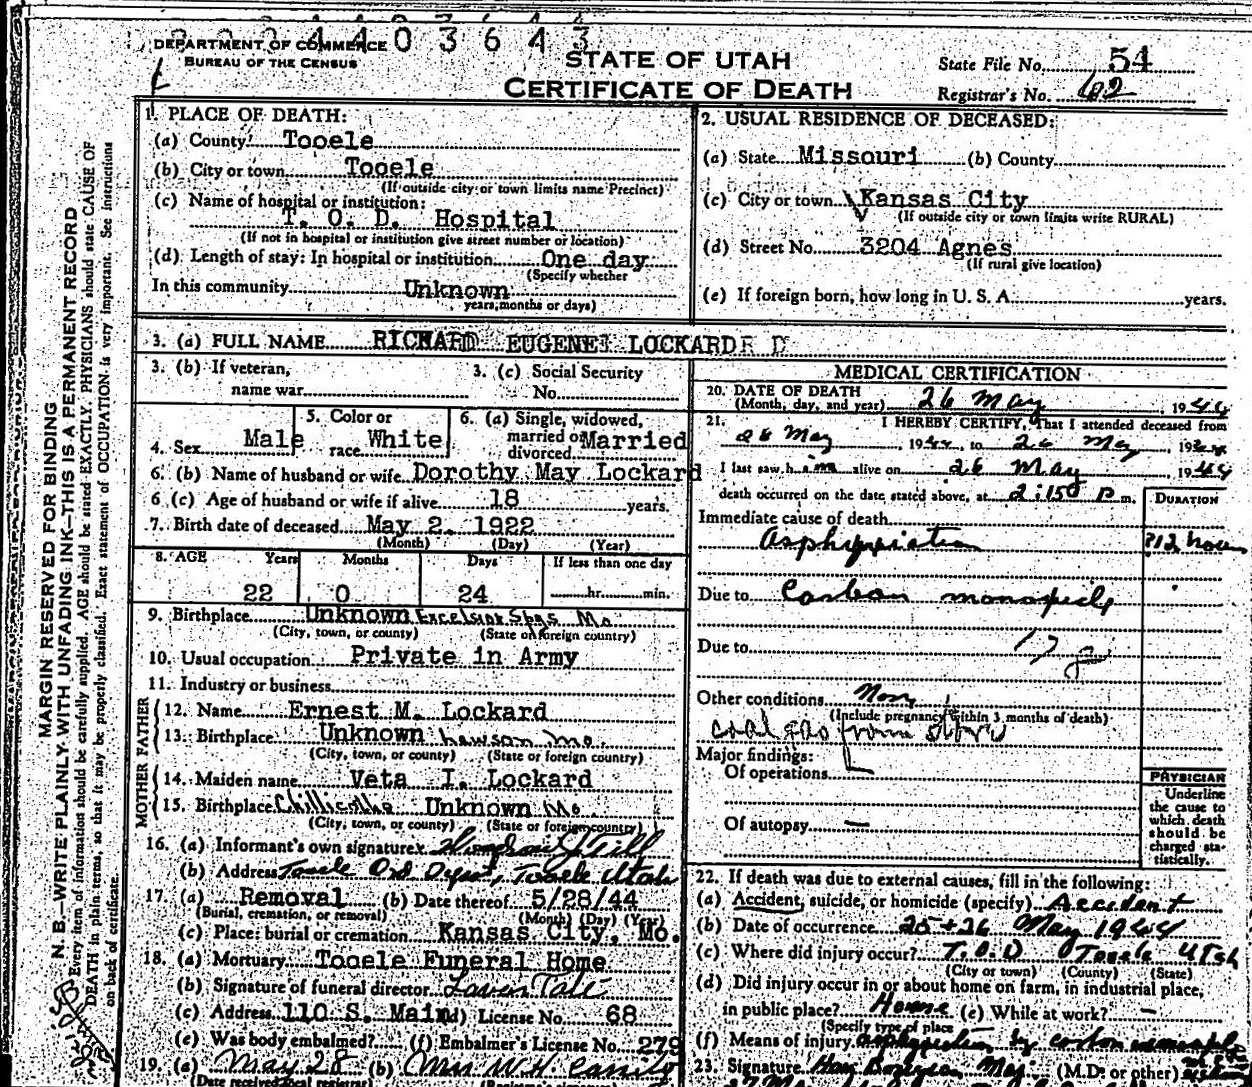 DEPARTMENT OF COMMERCE
BUREAU OF THE CENSUS
STATE OF UTAH
CERTIFICATE OF DEATH
State File No. 54
Registrar's No. 62
MARGIN RESERVED FOR BINDING
N. B.—WRITE PLAINLY WITH UNFADING INK—THIS IS A PERMANENT RECORD
Every item of information should be carefully supplied. AGE should be stated EXACTLY. PHYSICIANS should state CAUSE OF
DEATH in plain terms, so that it may be properly classified. Exact statement of OCCUPATION is very important. See instructions
on back of certificate.
1. PLACE OF DEATH:
(a) County Tooele
(b) City or town Tooele
(If outside city or town limits name Precinct)
(c) Name of hospital or institution:
T. O. D. Hospital
(If not in hospital or institution give street number or location)
(d) Length of stay: In hospital or institution One day
(Specify whether
In this community Unknown
years, months or days)
2. USUAL RESIDENCE OF DECEASED:
(a) State Missouri (b) County
(c) City or town Kansas City
(If outside city or town limits write RURAL)
(d) Street No. 3204 Agnes
(If rural give location)
(e) If foreign born, how long in U. S. A. years.
3. (a) FULL NAME RICHARD EUGENE LOCKARD
3. (b) If veteran,
name war
3. (c) Social Security
No.
4. Sex Male
5. Color or
race White
6. (a) Single, widowed,
married or
divorced Married
6. (b) Name of husband or wife Dorothy May Lockard
6. (c) Age of husband or wife if alive 18 years.
7. Birth date of deceased May 2, 1922
(Month) (Day) (Year)
8. AGE Years Months Days If less than one day
22 0 24 hr. min.
9. Birthplace Unknown Excelsior Spgs Mo.
(City, town, or county) (State or foreign country)
10. Usual occupation Private in Army
11. Industry or business
FATHER
12. Name Ernest M. Lockard
13. Birthplace Unknown Lawson Mo.
(City, town, or county) (State or foreign country)
MOTHER
14. Maiden name Veta I. Lockard
15. Birthplace Chillicothe Unknown Mo.
(City, town, or county) (State or foreign country)
16. (a) Informant's own signature
(b) Address Tooele Ord Depot, Tooele Utah
17. (a) Removal (b) Date thereof 5/28/44
(Burial, cremation, or removal) (Month) (Day) (Year)
(c) Place: burial or cremation Kansas City, Mo.
18. (a) Mortuary Tooele Funeral Home
(b) Signature of funeral director Laven Tate
(c) Address 110 S. Main (d) License No. 68
(e) Was body embalmed? (f) Embalmer's License No. 279
19. (a) May 28 (b) Mrs W.H.
(Date received local registrar)
MEDICAL CERTIFICATION
20. DATE OF DEATH
(Month, day, and year) 26 May, 1944
21. I HEREBY CERTIFY, That I attended deceased from
26 May, 1944, to 26 May, 1944
I last saw him alive on 26 May 1944
death occurred on the date stated above, at 2:150 p m.
DURATION
Immediate cause of death
Asphyxiation ?12 hours
Due to Carbon monoxide
Due to
Other conditions None
(Include pregnancy within 3 months of death)
coal gas from stove
Major findings:
Of operations
Of autopsy —
PHYSICIAN
Underline
the cause to
which death
should be
charged sta-
tistically.
22. If death was due to external causes, fill in the following:
(a) Accident, suicide, or homicide (specify) Accident
(b) Date of occurrence 25+26 May 1944
(c) Where did injury occur? T.O.D Tooele Utah
(City or town) (County) (State)
(d) Did injury occur in or about home on farm, in industrial place,
in public place? Home (e) While at work? —
(Specify type of place
(f) Means of injury asphyxiation by carbon monoxide
23. Signature (M.D. or other)